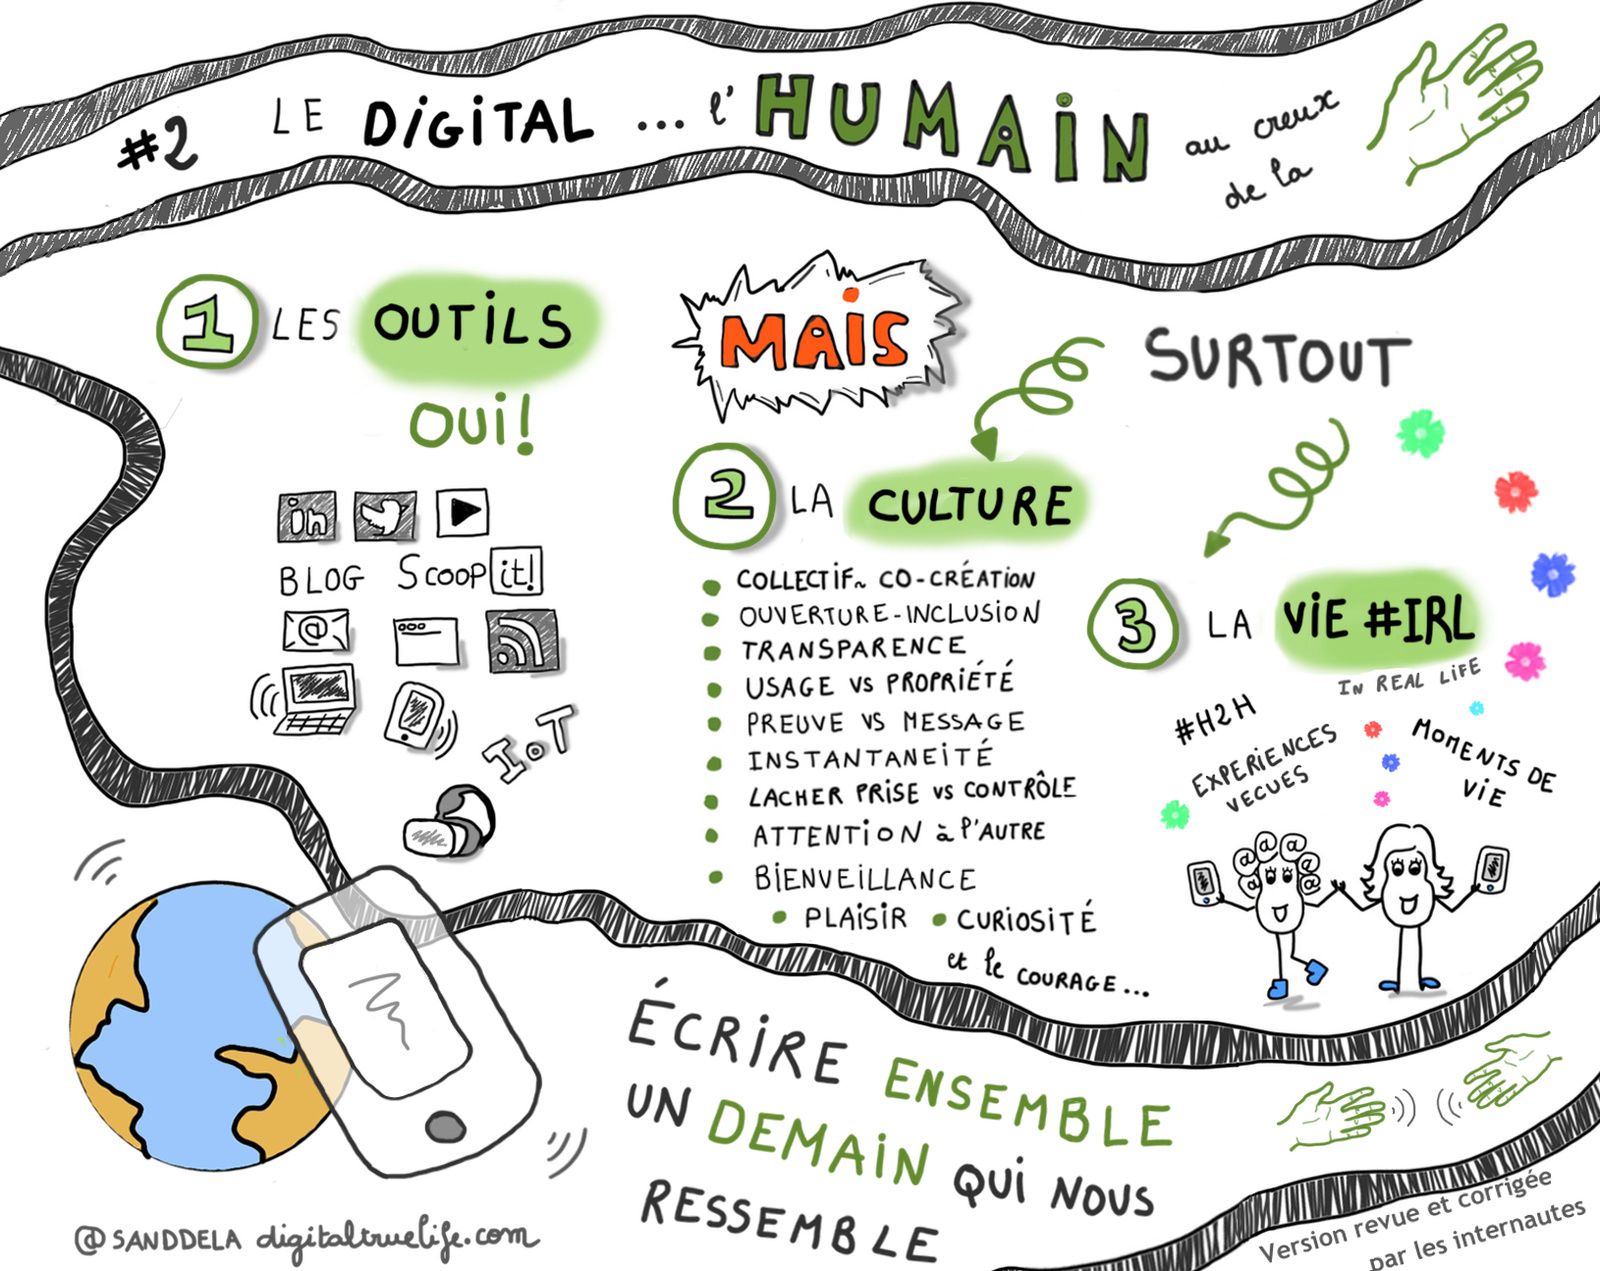 #2 LE DiGiTAL ... l'HUMAiN au creux
de la
1 LES OUTiLS
OUi!
MAiS
SURTOUT
in
BLOG Scoop it!
@
IoT
2 LA CULTURE
COLLECTIF~ CO-CRÉATiON
OUVERTURE-INCLUSION
TRANSPARENCE
USAGE VS PROPRIÉTÉ
PREUVE VS MESSAGE
INSTANTANEITÉ
LACHER PRISE VS CONTRÔLE
ATTENTiON à l'AUTRE
BiENVEiLLANCE
PLAiSiR
CURiOSiTÉ
et le COURAGE...
3 LA ViE #IRL
IN REAL LiFE
#H2H
EXPERiENCES
VECUES
MOMENTS DE
ViE
@ @ @ @ @ @
ÉCRiRE ENSEMBLE
UN DEMAiN QUi NOUS
RESSEMBLE
@SANDDELA digitaltruelife.com
Version revue et corrigée
par les internautes